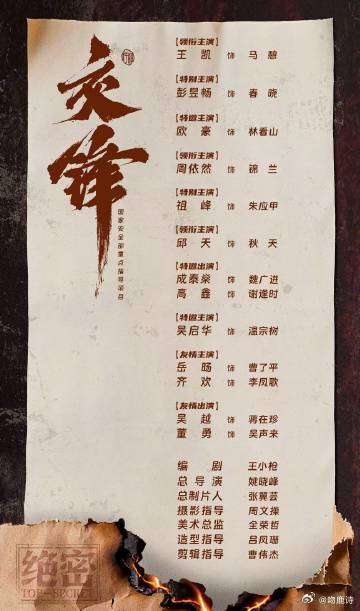 交锋
国家安全部重点指导项目
【领衔主演】
王凯 饰 马碧
【特别主演】
彭昱畅 饰 春晓
【特邀主演】
欧豪 饰 林看山
【领衔主演】
周依然 饰 锦兰
【特别主演】
祖峰 饰 朱应甲
【领衔主演】
邱天 饰 秋天
【特邀出演】
成泰燊 饰 魏广进
高鑫 饰 谢逢时
【特邀主演】
吴启华 饰 温宗树
【友情主演】
岳旸 饰 曹了平
齐欢 饰 李凤歌
【友情出演】
吴越 饰 蒋在珍
董勇 饰 吴声来
编剧 王小枪
总导演 姚晓峰
总制片人 张翼芸
摄影指导 周文操
美术总监 全荣哲
造型指导 吕凤珊
剪辑指导 曹伟杰
绝密
TOP SECRET
@吻鹿诗